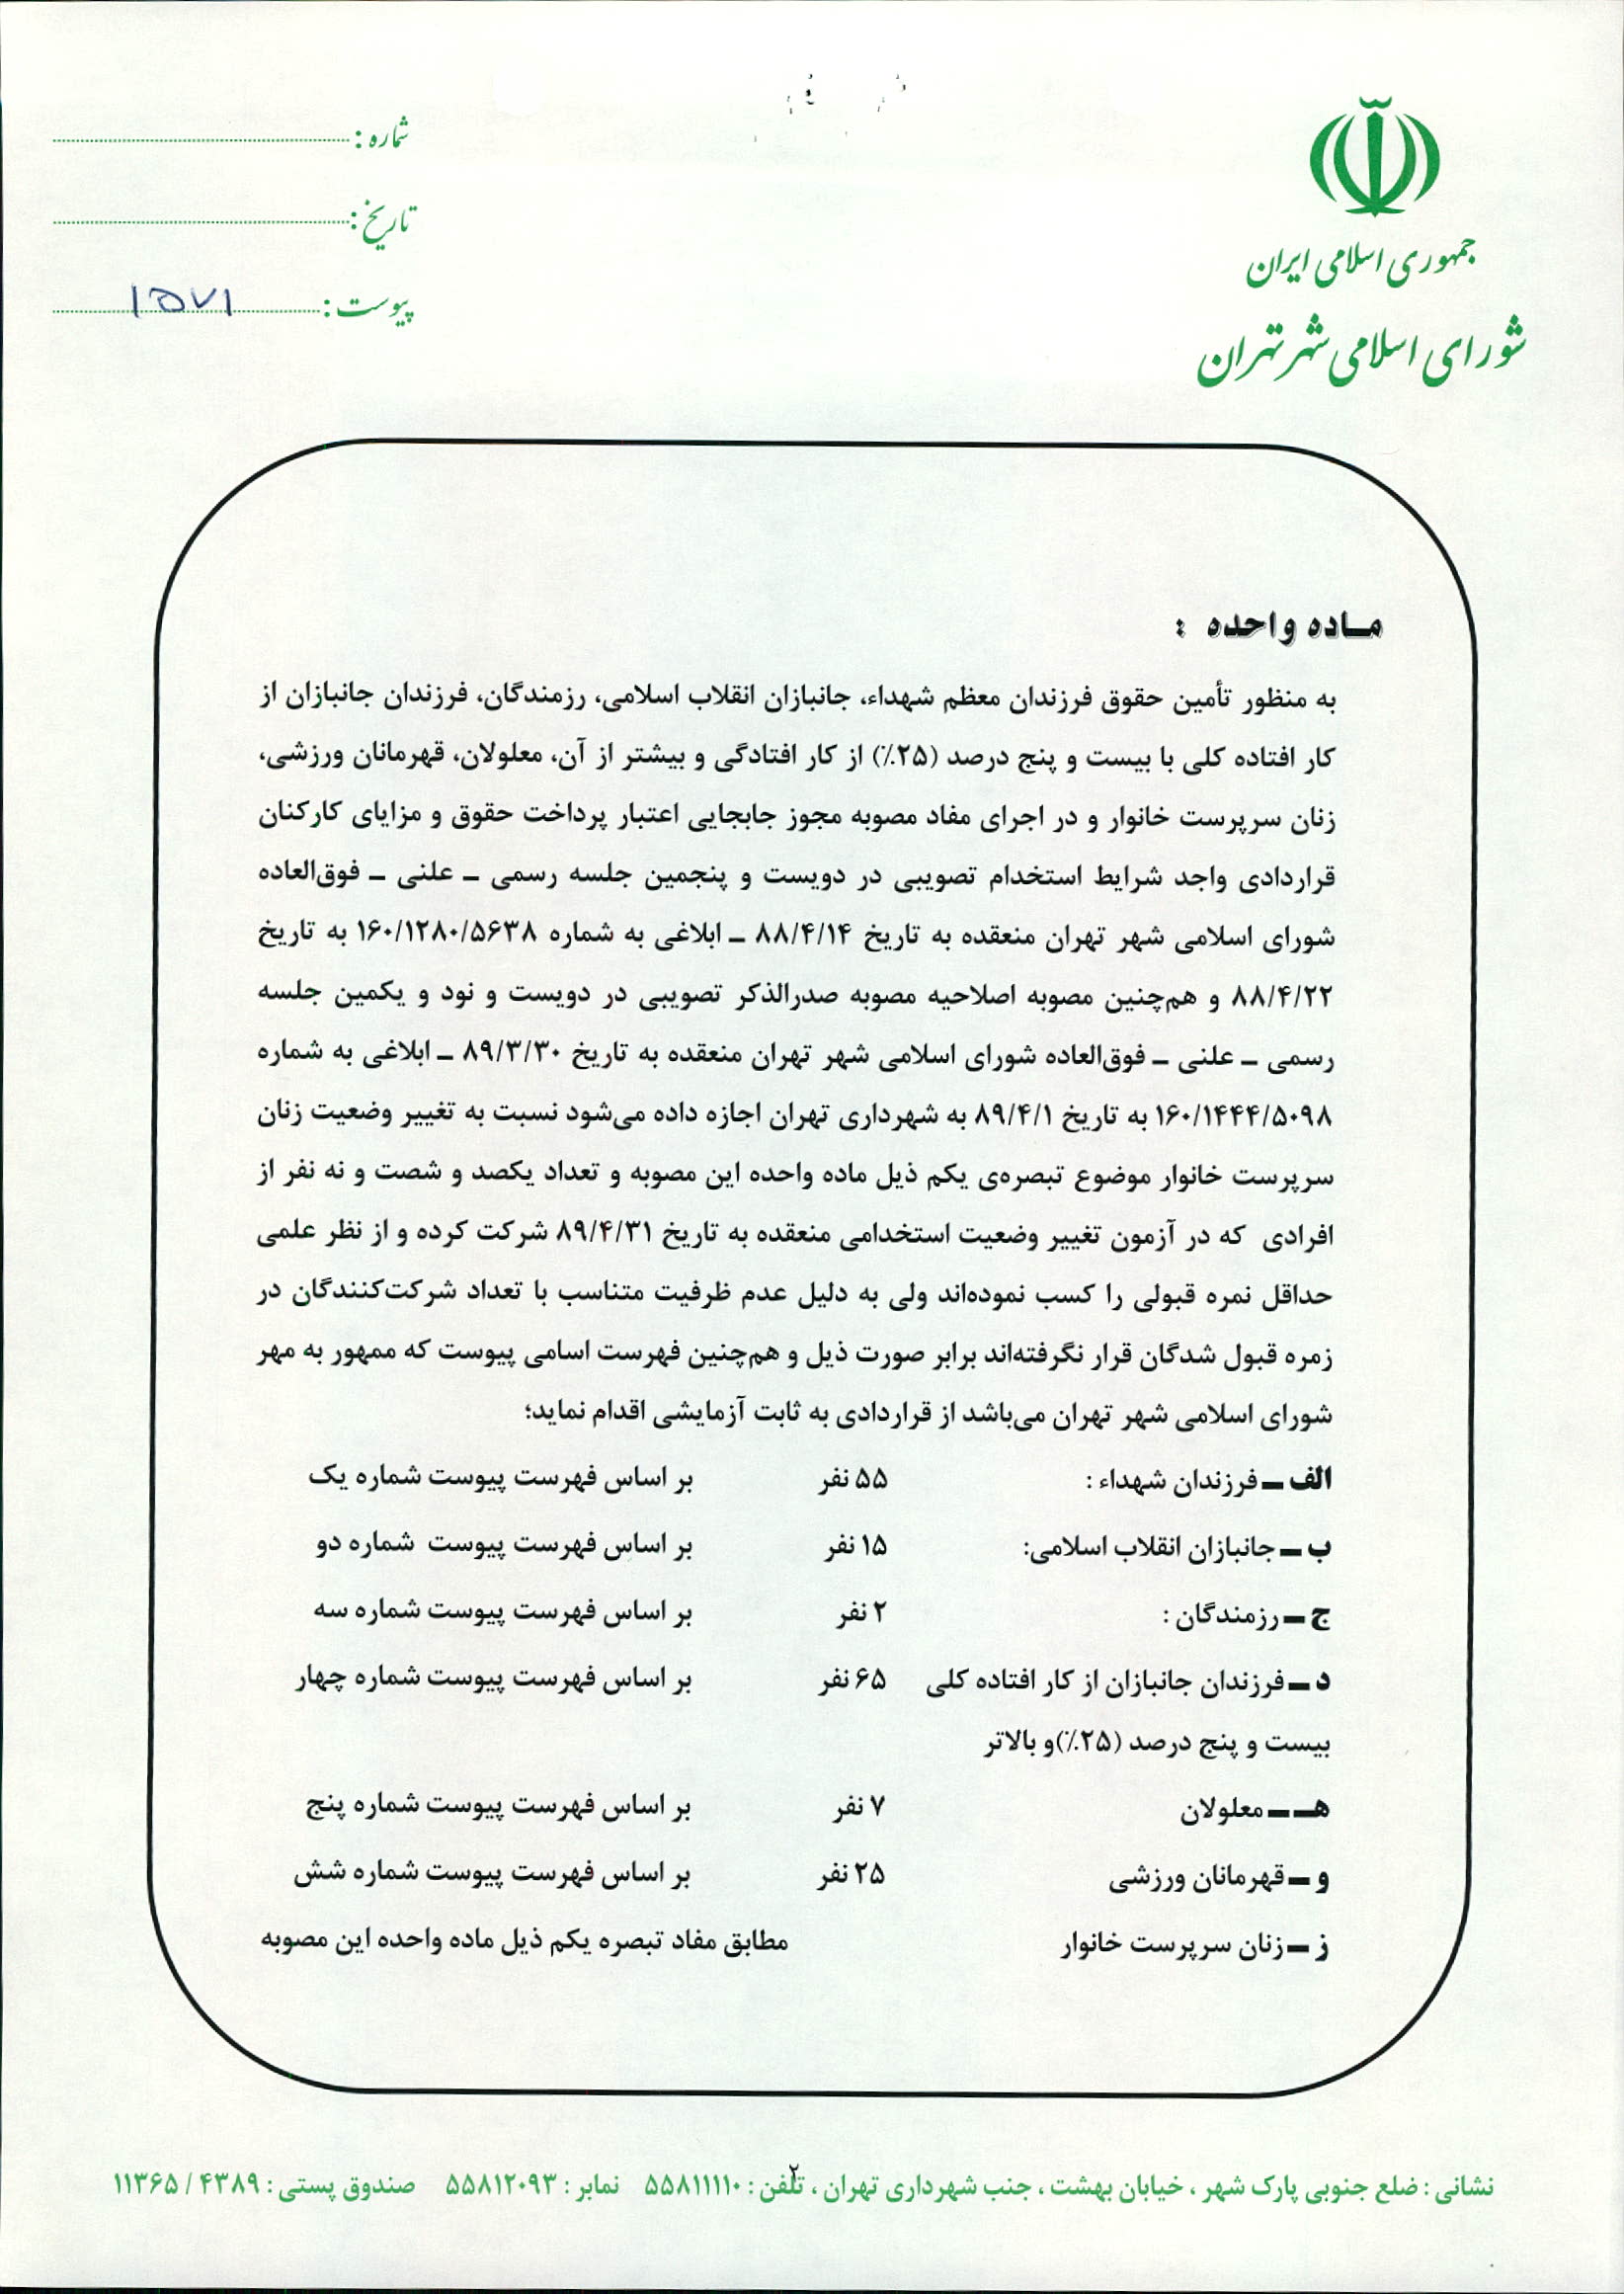 جمهوری اسلامی ایران
شورای اسلامی شهر تهران
شماره :
تاریخ :
پیوست : ۱۵۷۱
ماده واحده :
به منظور تأمین حقوق فرزندان معظم شهداء، جانبازان انقلاب اسلامی، رزمندگان، فرزندان جانبازان از
کار افتاده کلی با بیست و پنج درصد (۲۵٪) از کار افتادگی و بیشتر از آن، معلولان، قهرمانان ورزشی،
زنان سرپرست خانوار و در اجرای مفاد مصوبه مجوز جابجایی اعتبار پرداخت حقوق و مزایای کارکنان
قراردادی واجد شرایط استخدام تصویبی در دویست و پنجمین جلسه رسمی ـ علنی ـ فوق‌العاده
شورای اسلامی شهر تهران منعقده به تاریخ ۸۸/۴/۱۴ ـ ابلاغی به شماره ۱۶۰/۱۲۸۰/۵۶۳۸ به تاریخ
۸۸/۴/۲۲ و هم‌چنین مصوبه اصلاحیه مصوبه صدرالذکر تصویبی در دویست و نود و یکمین جلسه
رسمی ـ علنی ـ فوق‌العاده شورای اسلامی شهر تهران منعقده به تاریخ ۸۹/۳/۳۰ ـ ابلاغی به شماره
۱۶۰/۱۴۴۴/۵۰۹۸ به تاریخ ۸۹/۴/۱ به شهرداری تهران اجازه داده می‌شود نسبت به تغییر وضعیت زنان
سرپرست خانوار موضوع تبصره‌ی یکم ذیل ماده واحده این مصوبه و تعداد یکصد و شصت و نه نفر از
افرادی که در آزمون تغییر وضعیت استخدامی منعقده به تاریخ ۸۹/۴/۳۱ شرکت کرده و از نظر علمی
حداقل نمره قبولی را کسب نموده‌اند ولی به دلیل عدم ظرفیت متناسب با تعداد شرکت‌کنندگان در
زمره قبول شدگان قرار نگرفته‌اند برابر صورت ذیل و هم‌چنین فهرست اسامی پیوست که ممهور به مهر
شورای اسلامی شهر تهران می‌باشد از قراردادی به ثابت آزمایشی اقدام نماید؛
الف ـ فرزندان شهداء : ۵۵ نفر بر اساس فهرست پیوست شماره یک
ب ـ جانبازان انقلاب اسلامی: ۱۵ نفر بر اساس فهرست پیوست شماره دو
ج ـ رزمندگان : ۲ نفر بر اساس فهرست پیوست شماره سه
د ـ فرزندان جانبازان از کار افتاده کلی ۶۵ نفر بر اساس فهرست پیوست شماره چهار
بیست و پنج درصد (۲۵٪)و بالاتر
هـ ـ معلولان ۷ نفر بر اساس فهرست پیوست شماره پنج
و ـ قهرمانان ورزشی ۲۵ نفر بر اساس فهرست پیوست شماره شش
ز ـ زنان سرپرست خانوار مطابق مفاد تبصره یکم ذیل ماده واحده این مصوبه
۲
نشانی : ضلع جنوبی پارک شهر ، خیابان بهشت ، جنب شهرداری تهران ، تلفن : ۵۵۸۱۱۱۱۰ نمابر : ۵۵۸۱۲۰۹۳ صندوق پستی : ۴۳۸۹ / ۱۱۳۶۵